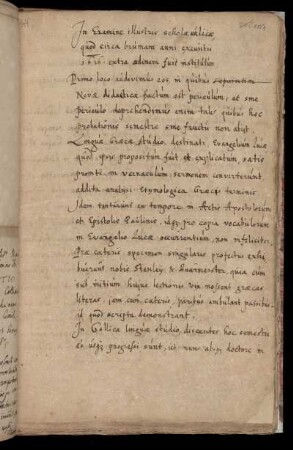 In Examine illustris scholæ aulicæ
quod circa brumam anni exeuntis
1626 extra ordinem fuit institutum
Primo loco audivimus eos in quibus
Novæ didacticæ factum est periculum, et sine
periculo deprehendimus enim tale quibus hoc
probationis semestre sine fructu non abijt.
Linguæ Græcæ studio, destinati Evangelium Lucæ
quod ipsis propositum fuit et explicatum, satis
prompte in vernaculum sermonem converterunt
addita analysi etymologica Græcis terminis
Idem tentârunt ex tempore in Actis Apostolorum
et Epistolis Paulinis, idque pro copia vocabulorum
in Evangelio Lucæ occurrentium non infeliciter.
Præ cæteris specimen singularis profectus exhi-
buerunt nobis Stanley & Haurmester, quia cum
sub initium hujus lectionis vix nossent græcas
literas, jam cum cæteris, paribus ambulant passibus
id quod scripta demonstrant.
In Gallicæ linguæ studio, discentes hoc semestri
eo usque progressi sunt, ut non absque doctore in